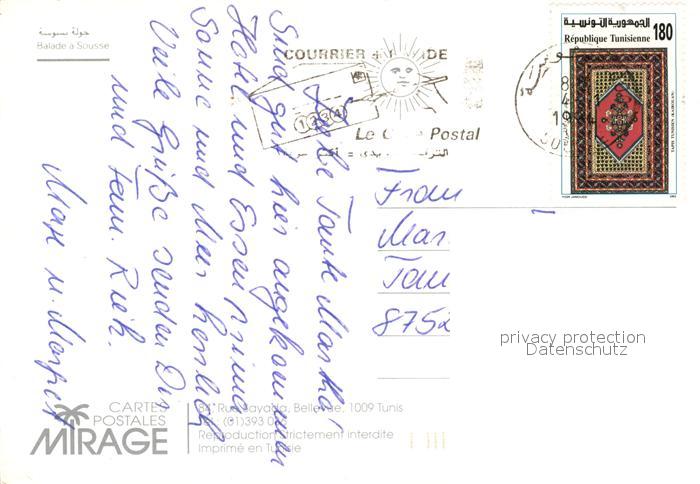 حولة بسوسة
Balade à Sousse
COURRIER + DE
1 2 3 4
Le Code Postal
الجمهورية التونسية
République Tunisienne
180
Liebe Tante Martha!
Sind gut hier angekommen
Hotel und Essen prima
Sonne und Meer herrlich
Viele Grüße senden Dir
und Fam.
Max u. Margret
Frau
Mar
Tan
8752
privacy protection
Datenschutz
CARTES
POSTALES
MIRAGE
Rue Bayada, Bellevue, 1009 Tunis
(01)393
Reproduction strictement interdite
Imprimé en Tunisie